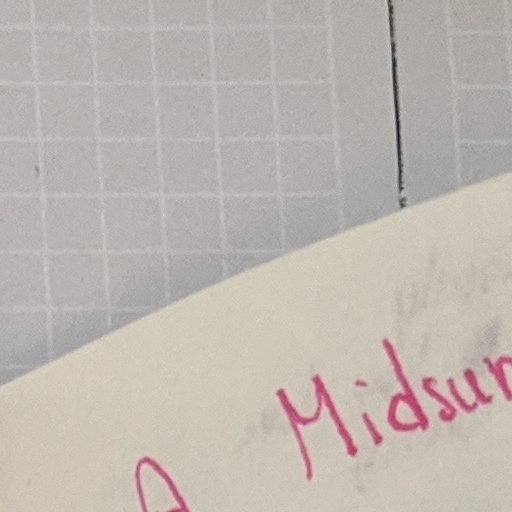 A Midsum